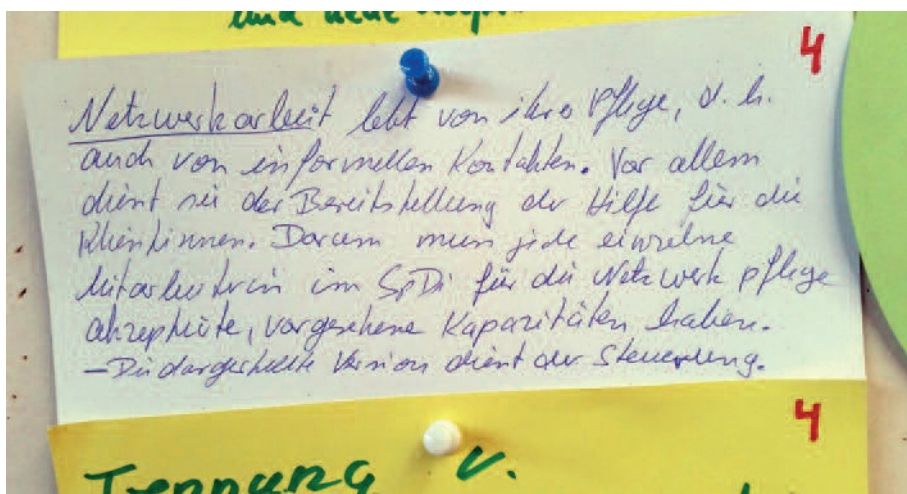 und neue
4
Netzwerkarbeit lebt von ihrer Pflege, d. h.
auch von informellen Kontakten. Vor allem
dient sie der Bereitstellung der Hilfe für die
Klientinnen. Darum muss jede einzelne
Mitarbeiterin im SpDi für die Netzwerkpflege
akzeptierte, vorgesehene Kapazitäten haben.
– Die dargestellte Version dient der Steuerung.
4
Trennung v.